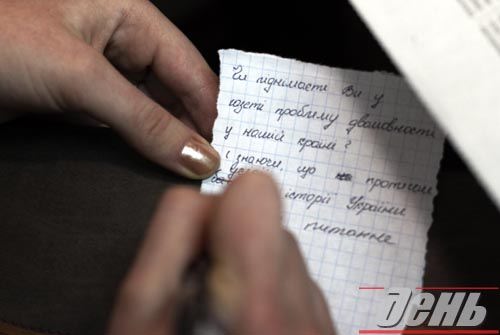 Чи піднімаєте Ви у
газеті проблему двомовности
у нашій країні?
і знаючи, що протягом
усієї історії України
питання
День